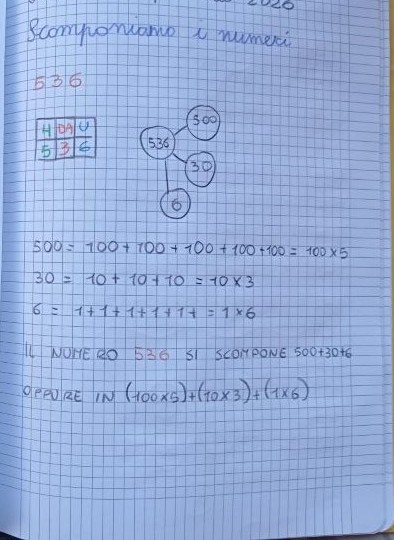 2026
Scomponiamo i numeri
536
H DA U
5 3 6
536
500
30
6
500 = 100 + 100 + 100 + 100 + 100 = 100 x 5
30 = 10 + 10 + 10 = 10 x 3
6 = 1+1+1+1+1+1+ = 1 x 6
IL NUMERO 536 SI SCOMPONE 500+30+6
OPPURE IN (100x5)+(10x3)+(1x6)